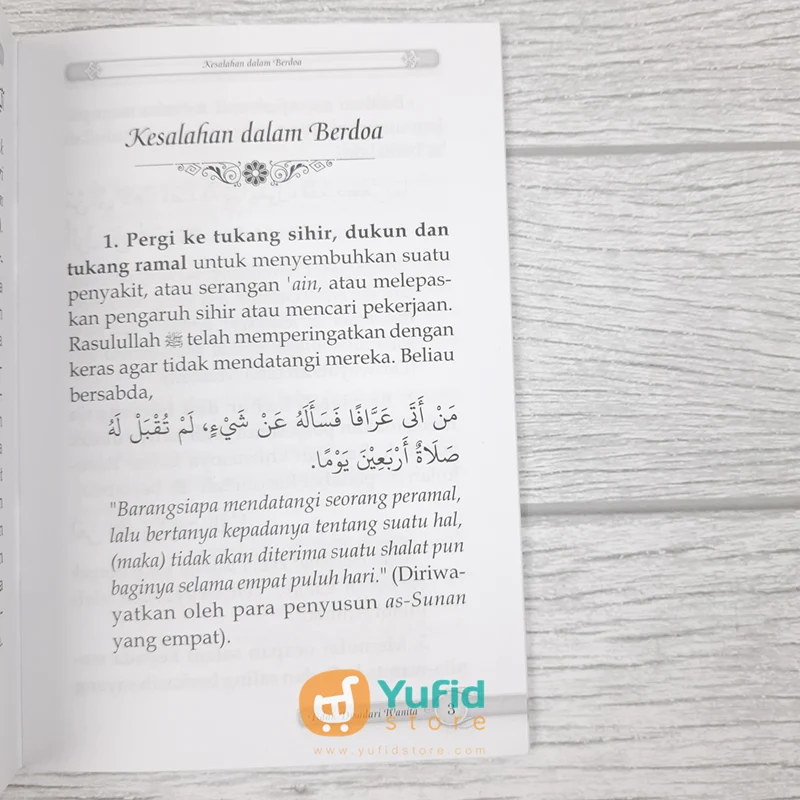 Kesalahan dalam Berdoa
Kesalahan dalam Berdoa
1. Pergi ke tukang sihir, dukun dan
tukang ramal untuk menyembuhkan suatu
penyakit, atau serangan 'ain, atau melepas-
kan pengaruh sihir atau mencari pekerjaan.
Rasulullah ﷺ telah memperingatkan dengan
keras agar tidak mendatangi mereka. Beliau
bersabda,
مَنْ أَتَى عَرَّافًا فَسَأَلَهُ عَنْ شَيْءٍ، لَمْ تُقْبَلْ لَهُ
صَلَاةٌ أَرْبَعِيْنَ يَوْمًا.
"Barangsiapa mendatangi seorang peramal,
lalu bertanya kepadanya tentang suatu hal,
(maka) tidak akan diterima suatu shalat pun
baginya selama empat puluh hari." (Diriwa-
yatkan oleh para penyusun as-Sunan
yang empat).
Wanita 3
Yufid
store
www.yufidstore.com